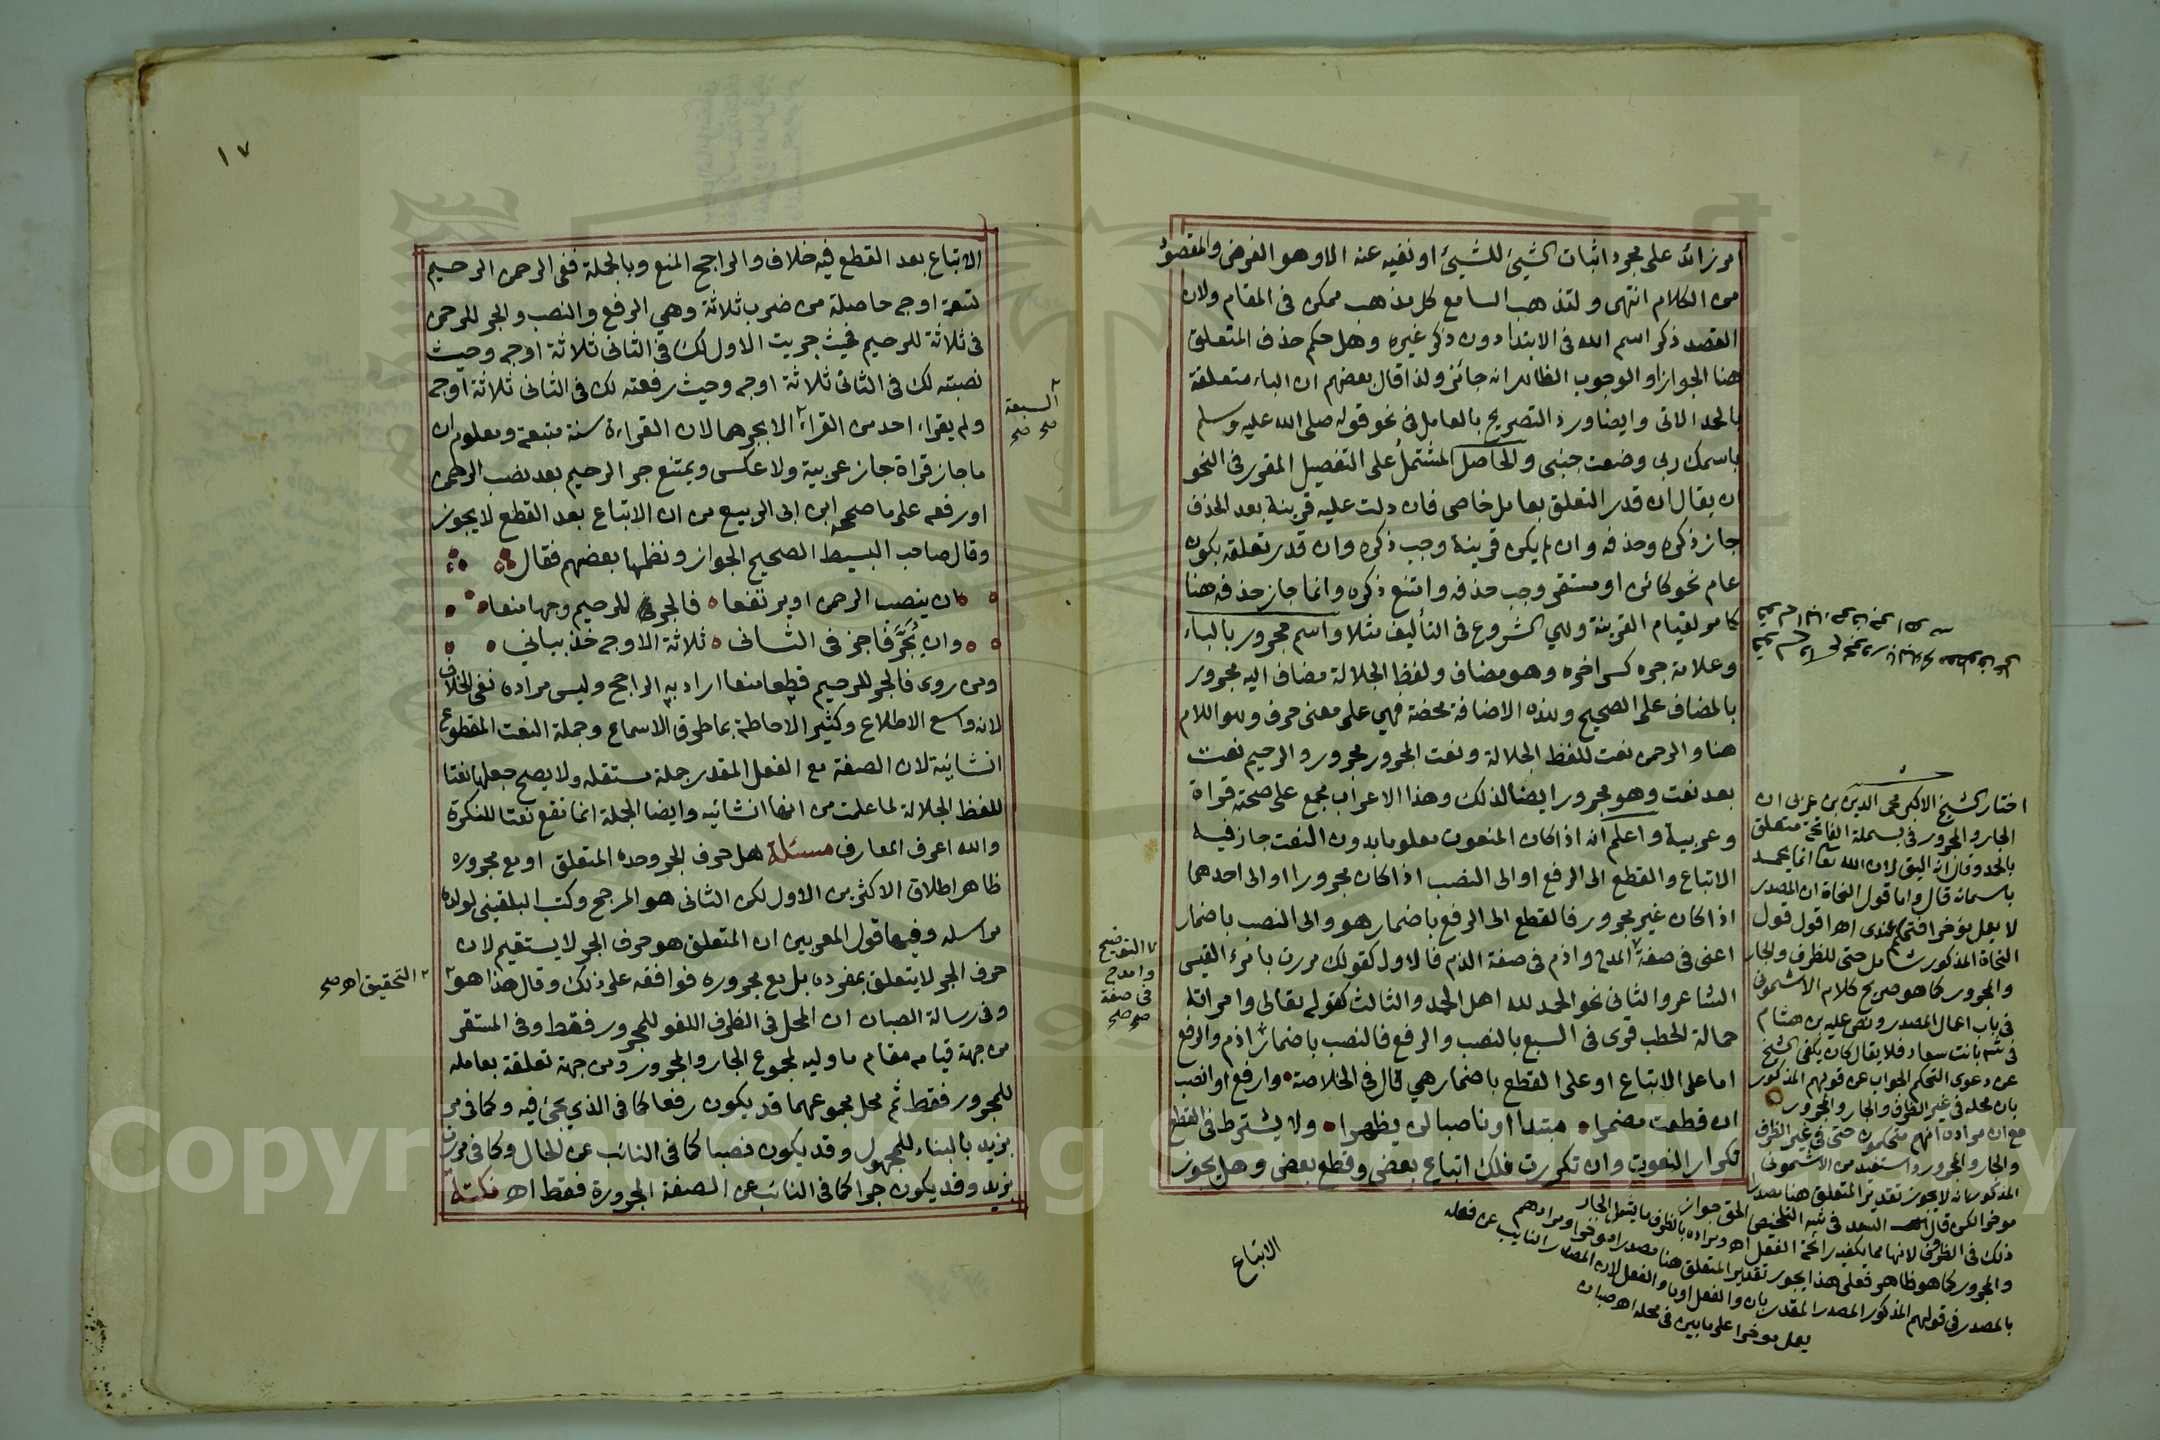 امر زائد على مجرد اثبات الشيئ للشيئ او نفيه عنه الا وهو الغرض والمقصود
من الكلام انتهى ولتذهب السامع كل مذهب ممكن في المقام ولان
القصد ذكر اسم الله في الابتدا دون ذكر غيره وهل حكم حذف المتعلق
هنا الجواز او الوجوب الظاهر انه جائز ولذا قال بعضهم ان الباء متعلقة
بالحد الاتى وايضا ورد التصريح بالعامل في نحو قوله صلى الله عليه وسلم
باسمك ربى وضعت جنبى والحاصل المشتمل على التفصيل المقرر في النحو
ان يقال ان قدر التعلق بعامل خاص فان دلت عليه قرينة بعد الحذف
جاز ذكره وحذفه وان لم يكن قرينة وجب ذكره وان قدر تعلقه بكون
عام نحو كائن او مستقر وجب حذفه وامتنع ذكره وانما جاز حذفه هنا
كما مر لقيام القرينة وهي الشروع في التأليف مثلا واسم مجرور بالباء
وعلامة جره كسر اخره وهو مضاف ولفظ الجلالة مضاف اليه مجرور
بالمضاف على الصحيح وهذه الاضافة محضة فهي على معنى حرف وهو اللام
هنا والرحمن نعت للفظ الجلالة ونعت المجرور مجرور والرحيم نعت
بعد نعت وهو مجرور ايضا لذلك وهذا الاعراب مجمع على صحته قراة
وعربية واعلم انه اذا كان المنعوت معلوما بدون النعت جاز فيه
الاتباع والقطع الى الرفع او الى النصب اذا كان مجرورا او الى احدهما
اذا كان غير مجرور فالقطع الى الرفع باضمار هو والى النصب باضمار
اعنى في صفة المدح واذم في صفة الذم فالاول كقولك مررت بامرئ القيس
الشاعر والثانى نحو الحمد لله اهل الحمد والثالث كقوله تعالى وامراته
حمالة الحطب قرى في السبع بالنصب والرفع فالنصب باضمار اذم والرفع
اما على الاتباع او على القطع باضمار هي قال في الخلاصة وارفع او انصب
ان قطعت مضمرا مبتدا او ناصبا لن يظهرا ولا يشترط في القطع
تكرار النعوت وان تكررت فلك اتباع بعض وقطع بعض وهل يجوز
الاتباع
التوضيح
وامدح
في صفة
صح صح
اختار الشيخ الاكبر محى الدين بن عربى ان
الجار والمجرور في بسملة الفاتحة متعلق
بالحمد وقال انه اليق لان الله تعا انما يحمد
باسمائه قال واما قول النحاة ان المصدر
لا يعمل مؤخرا فتحكم عندى اهـ اقول قول
النحاة المذكور شامل حتى للظرف والجار
والمجرور كما هو صريح كلام الاشمونى
في باب اعمال المصدر ونص عليه بن هشام
في شرح بانت سعاد فلا يقال كان يكفى الشيخ
عن دعوى التحكم الجواب عن قولهم المذكور
بان محله في غير الظرف والجار والمجرور
مع ان مراده انهم متحكمون حتى في غير الظرف
والجار والمجرور واستفيد من الاشمونى
المذكور انه لا يجوز تقدير المتعلق هنا مصدرا
موخرا لكن قال السعد في شرح التلخيص الحق جواز
ذلك في الظروف لانها مما يكفيه رائحة الفعل اهـ ومراده بالظرف ما يشمل الجار
والمجرور كما هو ظاهر فعلى هذا يجوز تقدير المتعلق هنا مصدرا موخرا ومرادهم
بالمصدر في قولهم المذكور المصدر المقدر بان والفعل او ما والفعل لان المصدر النايب عن فعله
يعمل موخرا على ما بين في محله اهـ صبان
١٧
الاتباع بعد القطع فيه خلاف والراجح المنع وبالجملة ففى الرحمن الرحيم
تسعة اوجه حاصلة من ضرب ثلاثة وهي الرفع والنصب والجر للرحمن
في ثلاثة للرحيم فحيث جريت الاول لك في الثانى ثلاثة اوجه وحيث
نصبته لك في الثانى ثلاثة اوجه وحيث رفعته لك في الثانى ثلاثة اوجه
ولم يقراء احد من القراء الا بجرهما لان القراءة سنة متبعة ومعلوم ان
ما جاز قراة جاز عربية ولا عكس ويمتنع جر الرحيم بعد نصب الرحمن
او رفعه على ما صححه ابن ابى الربيع من ان الاتباع بعد القطع لا يجوز
وقال صاحب البسيط الصحيح الجواز ونظمها بعضهم فقال
ان ينصب الرحمن او يرتفعا فالجر في للرحيم وجها منعا
وان يُجَرَّ فاجز في الثانى ثلاثة الاوجه خذ بيانى
ومن روى فالجر للرحيم قطعا منعا اراد به الراجح وليس مراده نفى الخلاف
لانه واسع الاطلاع وكثير الاحاطة بما طرق الاسماع وجملة النعت المقطوع
انشائية لان الصفة مع الفعل المقدر جملة مستقله ولا يصح جعلها نعتا
للفظ الجلالة لما علمت من انها انشائيه وايضا الجملة انما تقع نعتا للنكرة
والله اعرف المعارف مسئلة هل حرف الجر وحده المتعلق او مع مجروره
ظاهر اطلاق الاكثرين الاول لكن الثانى هو المرجح وكتب البلقينى لولده
مراسله وفيها قول المعربين ان المتعلق هو حرف الجر لا يستقيم لان
حرف الجر لا يتعلق بمفرده بل مع مجروره فوافقه على ذلك وقال هذا هو
وفى رسالة الصبان ان المحل في الظرف اللغو للمجرور فقط وفى المستقر
من جهة قيامه مقام ما وليه لمجموع الجار والمجرور ومن جهة تعلقة بعامله
للمجرور فقط ثم محل مجموعهما قد يكون رفعا كما في الذي يجئ فيه وكما في مر
بزيد بالبناء للمجهول وقد يكون نصبا كما في النائب عن الحال وكما في مررت
بزيد وقد يكون جرا كما في النائب عن الصفة المجرورة فقط اهـ نكتة
السبعة
صح صح
التحقيق اهـ صح
Copyright © King Saud University